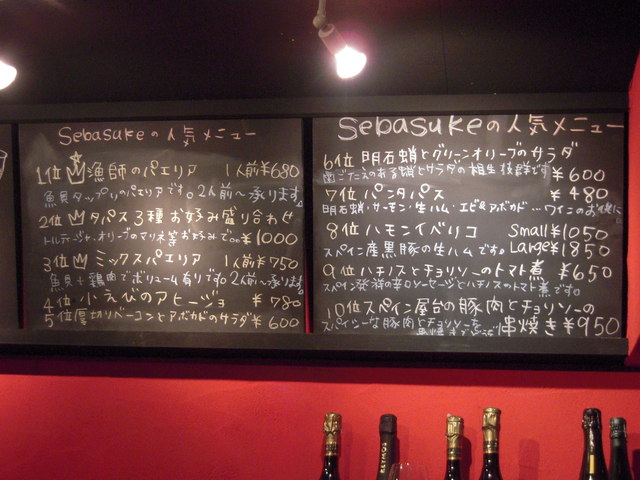 Sebasukeの人気メニュー
1位 漁師のパエリア 1人前¥680
魚貝タップリのパエリアです。2人前〜承ります。
2位 タパス3種お好み盛り合わせ
トルティージャ、オリーブのマリネ等お好みで。¥1000
3位 ミックスパエリア 1人前¥750
魚貝+鶏肉でボリューム有りです。2人前〜承ります。
4位 小えびのアヒージョ ¥780
5位 厚切りベーコンとアボカドのサラダ ¥600
Sebasukeの人気メニュー
6位 明石蛸とグリーンオリーブのサラダ
歯ごたえのある蛸とサラダの相性抜群です ¥600
7位 パンタパス ¥480
明石蛸・サーモン・生ハム・エビ&アボカド…ワインのお供に
8位 ハモンイベリコ Small¥1050
スペイン産黒豚の生ハムです。 Large¥1850
9位 ハチノスとチョリソーのトマト煮 ¥650
スペイン発祥の辛口ソーセージとハチノスのトマト煮です。
10位 スペイン屋台の豚肉とチョリソーの
スパイシーな豚肉とチョリソーを 串焼き¥950